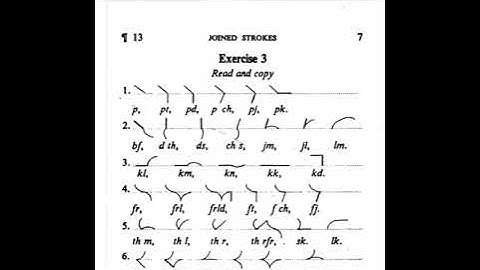 ¶ 13 JOINED STROKES 7
Exercise 3
Read and copy
1.
p, pt, pd, p ch, pj, pk.
2.
bf, d th, ds, ch s, jm, jl, lm.
3.
kl, km, kn, kk, kd.
4.
fr, frl, frld, ft, f ch, fj.
5.
th m, th l, th r, th rfr, sk. lk.
6.